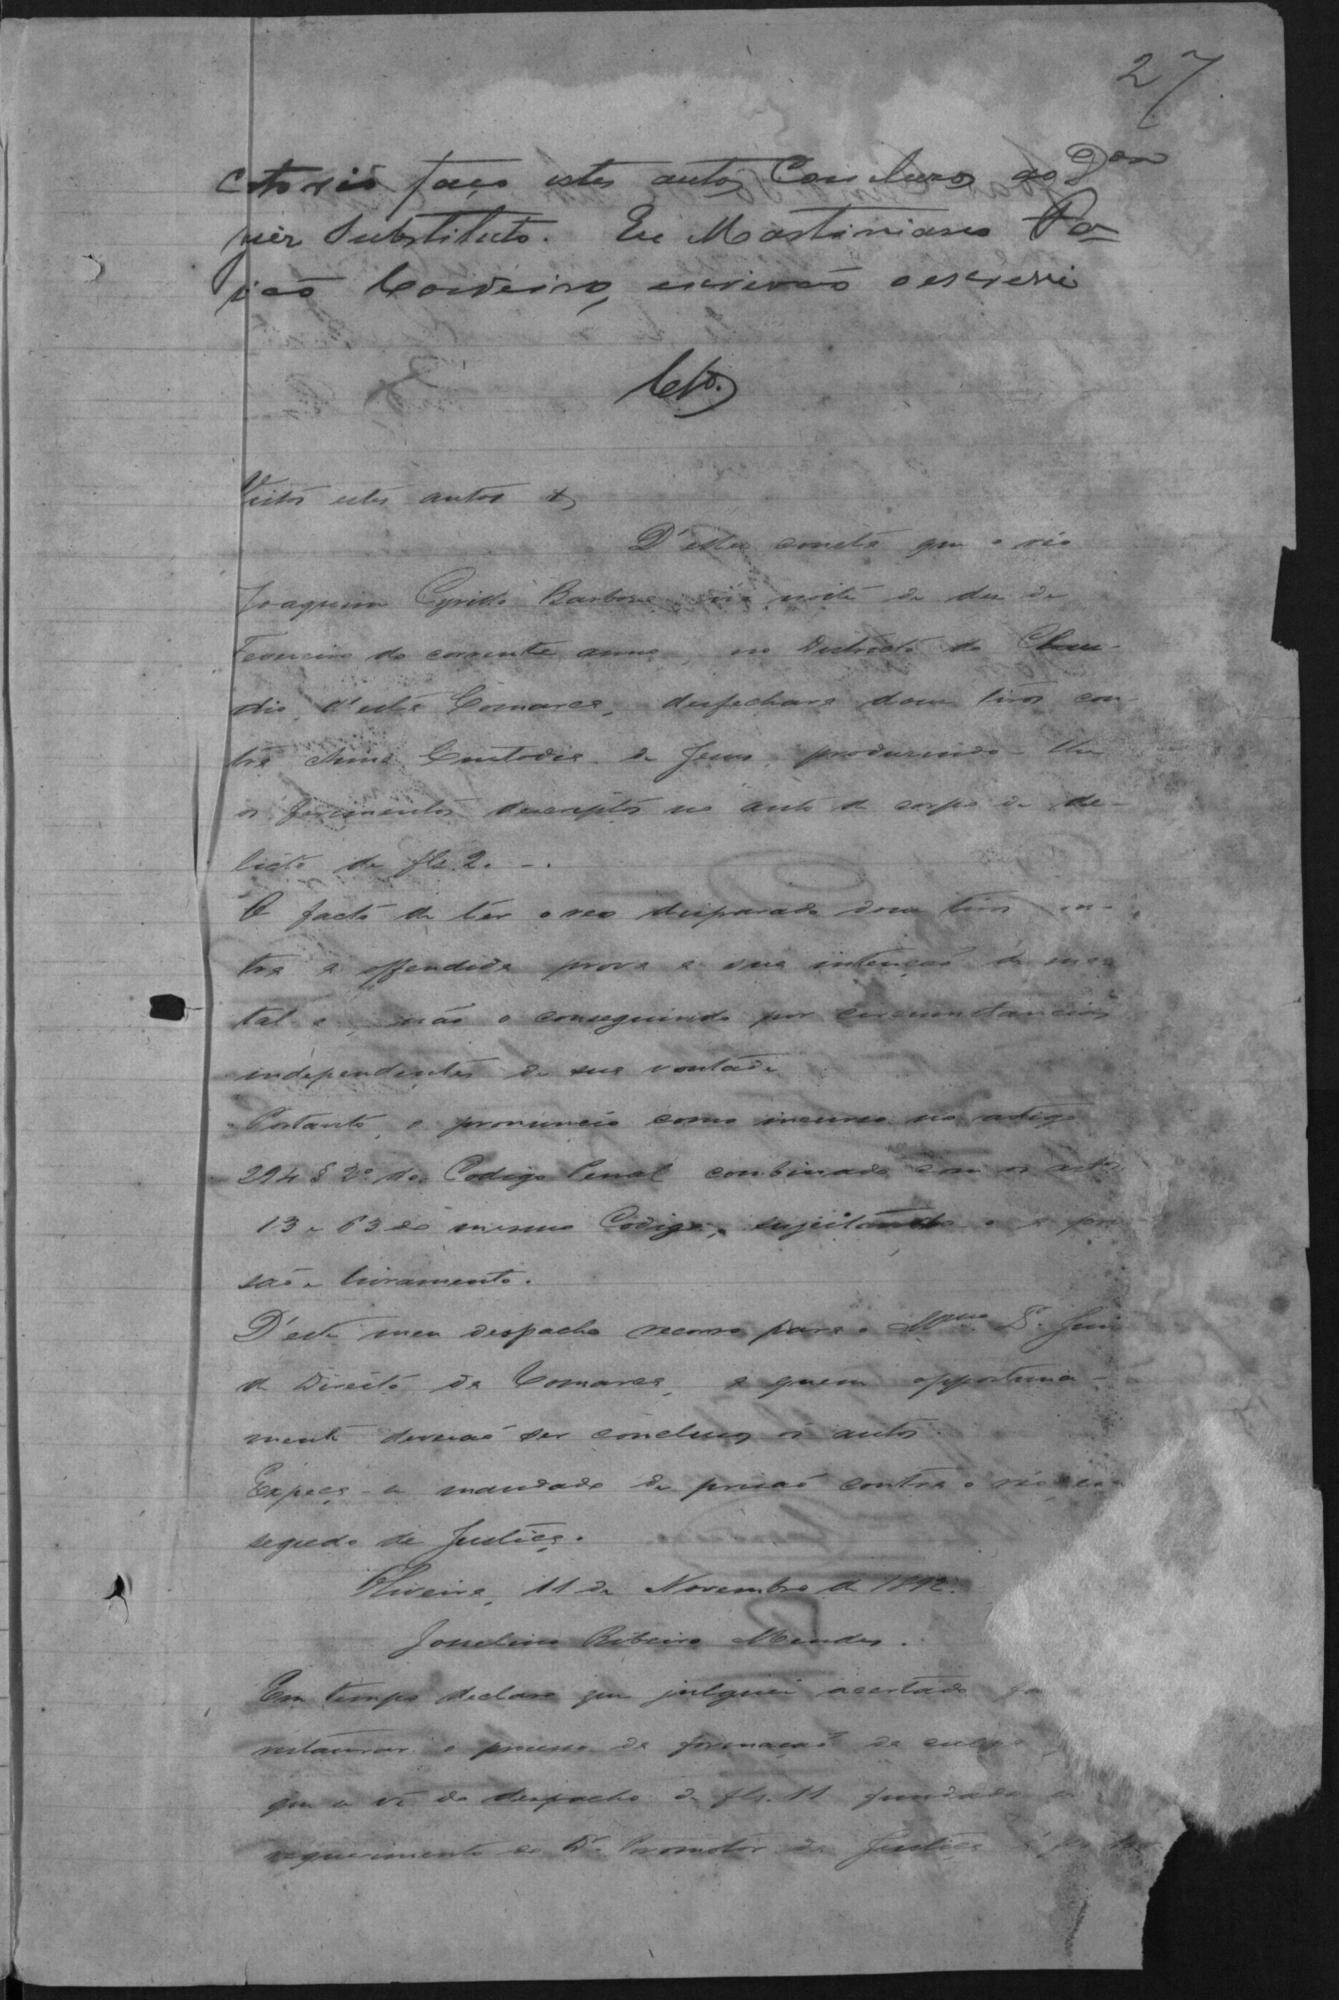 27
ctorio faço estes autos Conclusos ao Dor
juiz Substituto. Eu Martiniano Pa-
ixão Cordeiro, escrivão o escrevi
Clo.
Vistos estes autos &
D'estes consta que o réo
Joaquim Cyrido Barbosa, na noite de dez de
Fevereiro do corrente anno, no Districto do Clau-
dio, d'esta Comarca, desfechara dous tiros con-
tra Anna Custodia de Jesus, produzindo-lhe
os ferimentos descriptos no auto de corpo de de-
licto de fls. 2.
O facto de ter o reo disparado dous tiros con-
tra a offendida prova a sua intenção de ma-
tal-a, não o conseguindo por circumstancias
independentes de sua vontade
Portanto, o pronuncio como incurso no artigo
294 § 2º do Codigo Penal combinado com os artos
13 e 63 do mesmo Codigo, sujeitando-o a pri
são e livramento.
D'este meu despacho recorro para o Mmo Dr. Juiz
de Direito da Comarca, a quem opportuna-
mente deverão ser conclusos os autos.
Expeça-se mandado de prisão contra o réo em
segredo de Justiça.
Oliveira, 11 de Novembro de 1892.
Josselino Ribeiro Mendes.
Em tempo declaro que julguei acertado
restaurar o processo de formação da culpa
que se vê do despacho de fls. 11 fundado
requerimento do Dr. Promotor da Justiça